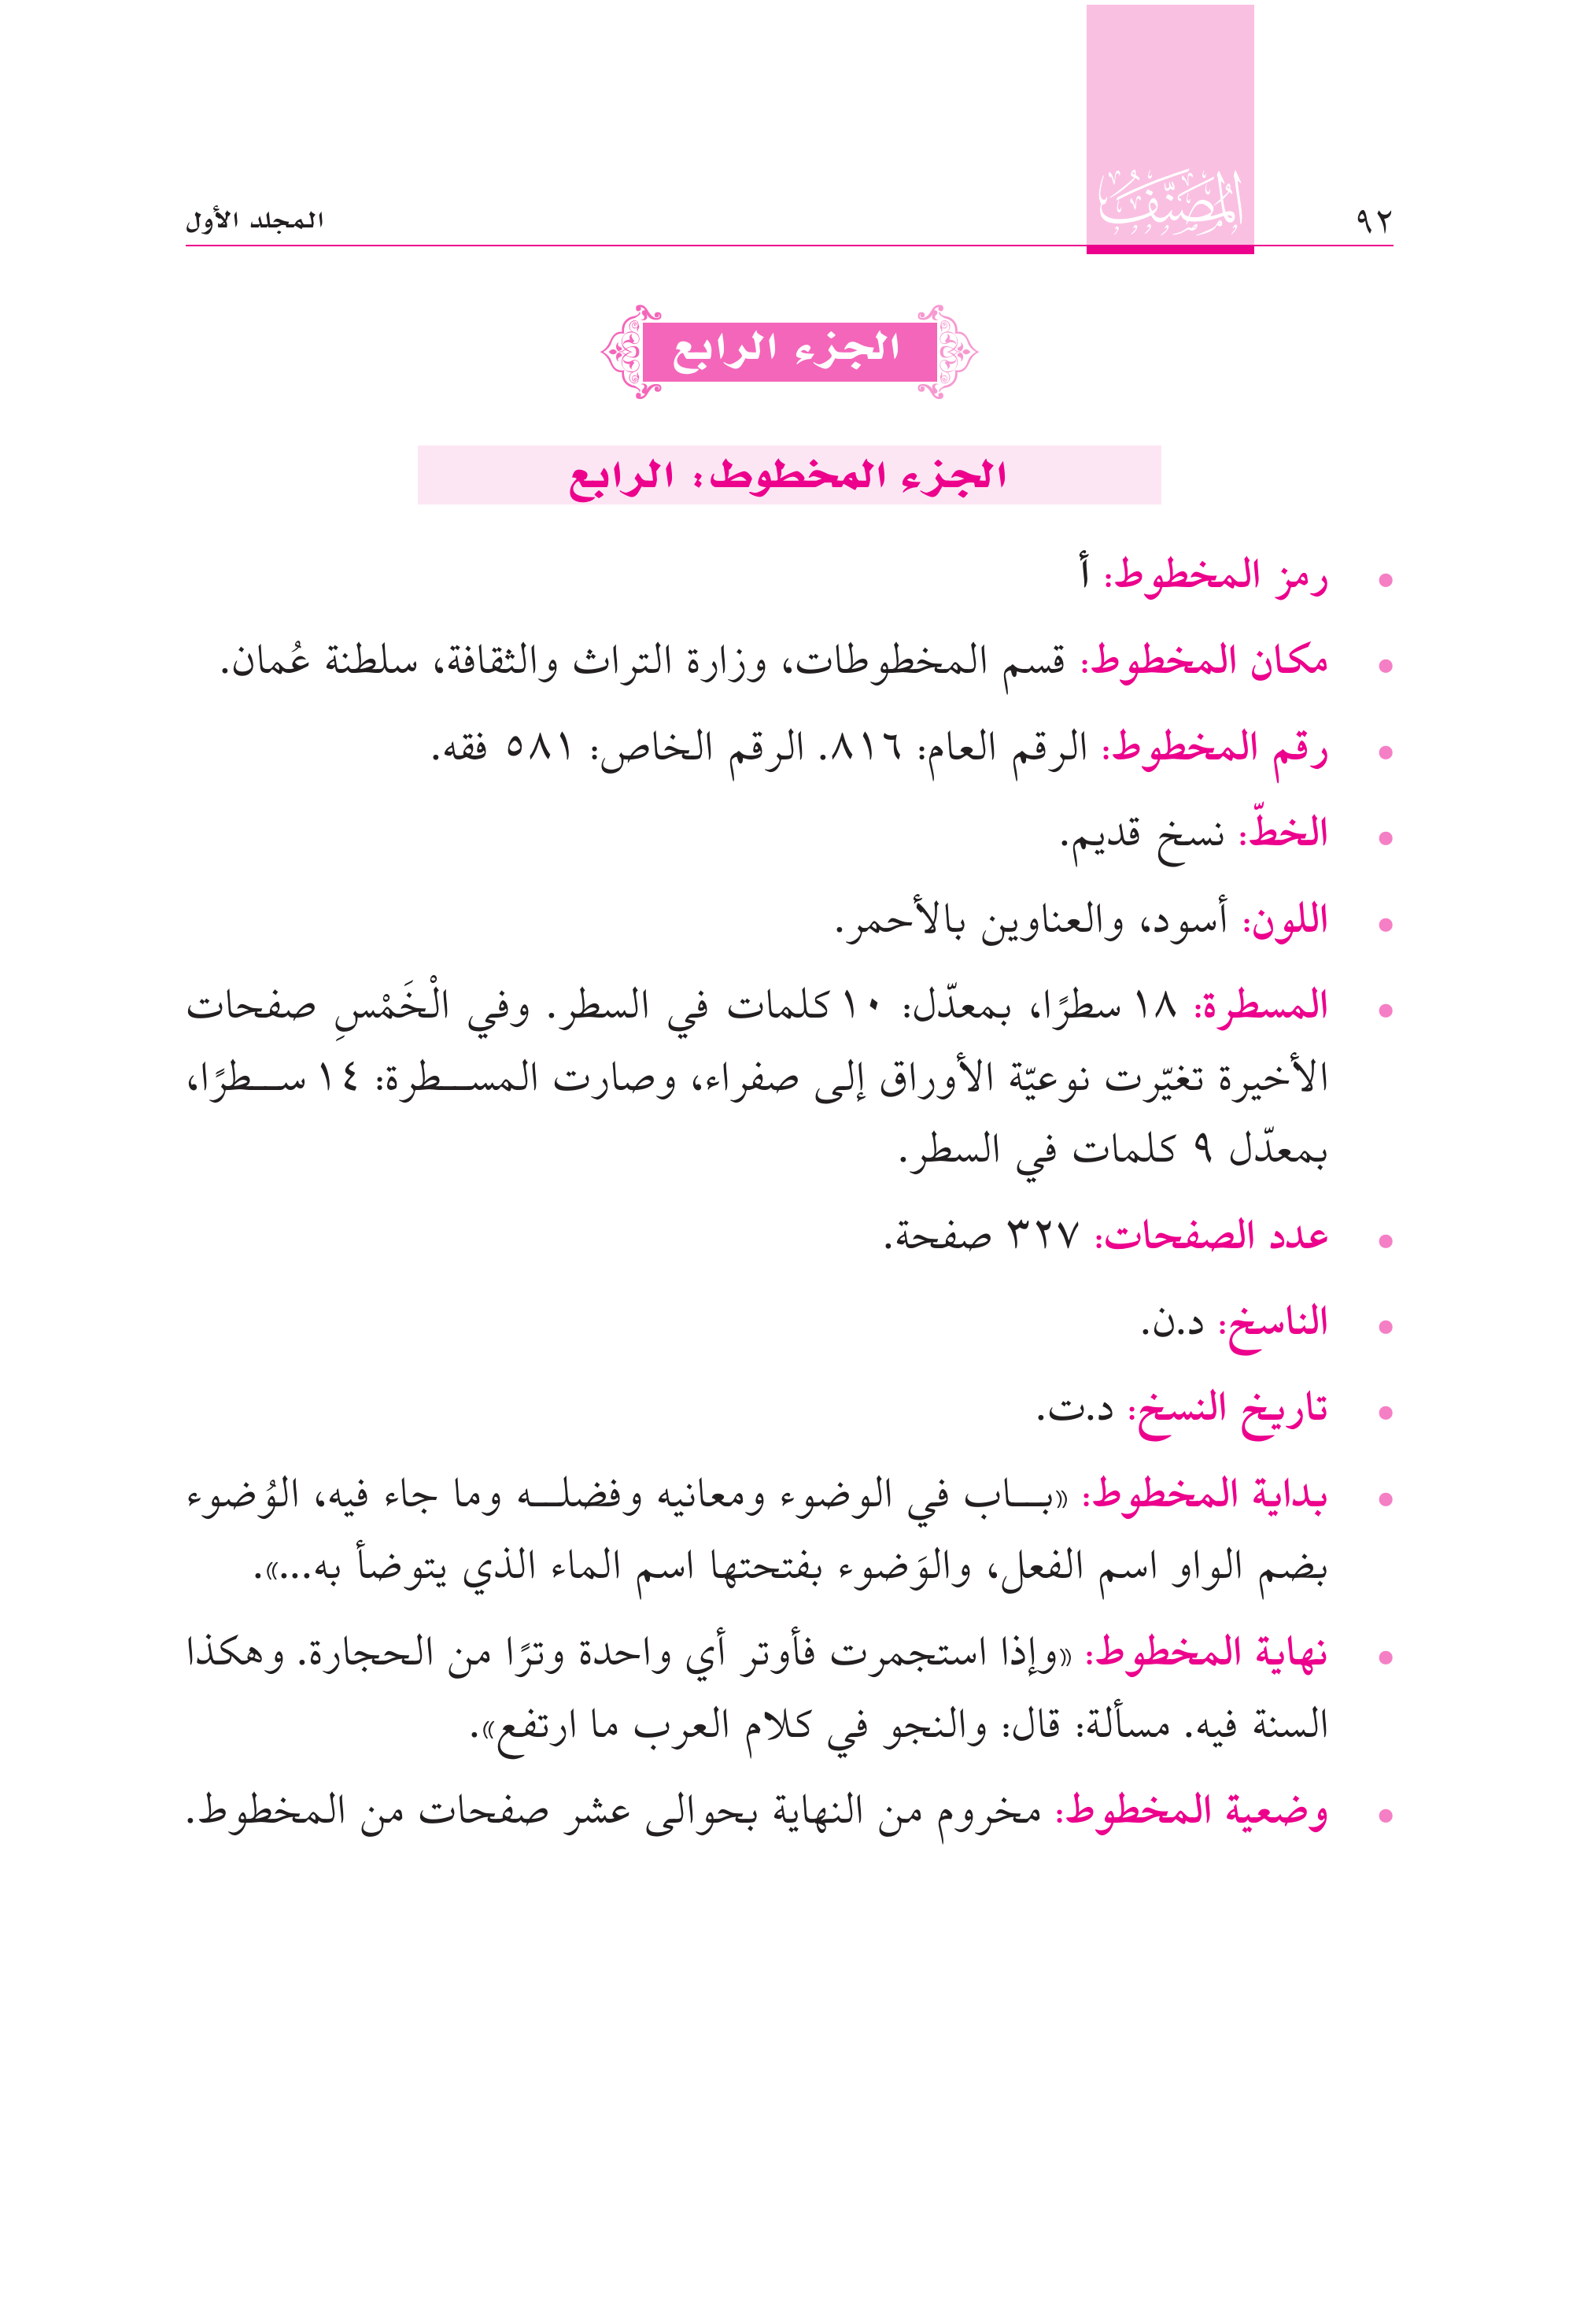 ٩٢
المُصَنَّفُ
المجلد الأول
الجزء الرابع
الجزء المخطوط: الرابع
• رمز المخطوط: أ
• مكان المخطوط: قسم المخطوطات، وزارة التراث والثقافة، سلطنة عُمان.
• رقم المخطوط: الرقم العام: ٨١٦. الرقم الخاص: ٥٨١ فقه.
• الخطّ: نسخ قديم.
• اللون: أسود، والعناوين بالأحمر.
• المسطرة: ١٨ سطرًا، بمعدّل: ١٠ كلمات في السطر. وفي الْخَمْسِ صفحات
الأخيرة تغيّرت نوعيّة الأوراق إلى صفراء، وصارت المســطرة: ١٤ ســطرًا،
بمعدّل ٩ كلمات في السطر.
• عدد الصفحات: ٣٢٧ صفحة.
• الناسخ: د.ن.
• تاريخ النسخ: د.ت.
• بداية المخطوط: «بــاب في الوضوء ومعانيه وفضلــه وما جاء فيه، الوُضوء
بضم الواو اسم الفعل، والوَضوء بفتحتها اسم الماء الذي يتوضأ به...».
• نهاية المخطوط: «وإذا استجمرت فأوتر أي واحدة وترًا من الحجارة. وهكذا
السنة فيه. مسألة: قال: والنجو في كلام العرب ما ارتفع».
• وضعية المخطوط: مخروم من النهاية بحوالى عشر صفحات من المخطوط.